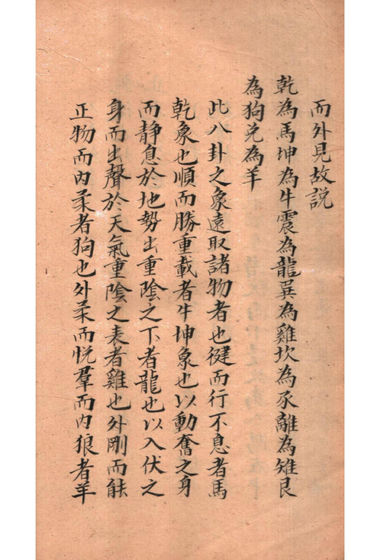 而外見故説
乾為馬坤為牛震為龍巽為雞坎為豕離為雉艮
為狗兌為羊
此八卦之象遠取諸物者也健而行不息者馬
乾象也順而勝重載者牛坤象也以動奮之身
而静息於地勢出重陰之下者龍也以入伏之
身而出聲於天氣重陰之表者雞也外剛而能
正物而内柔者狗也外柔而悅羣而内狼者羊